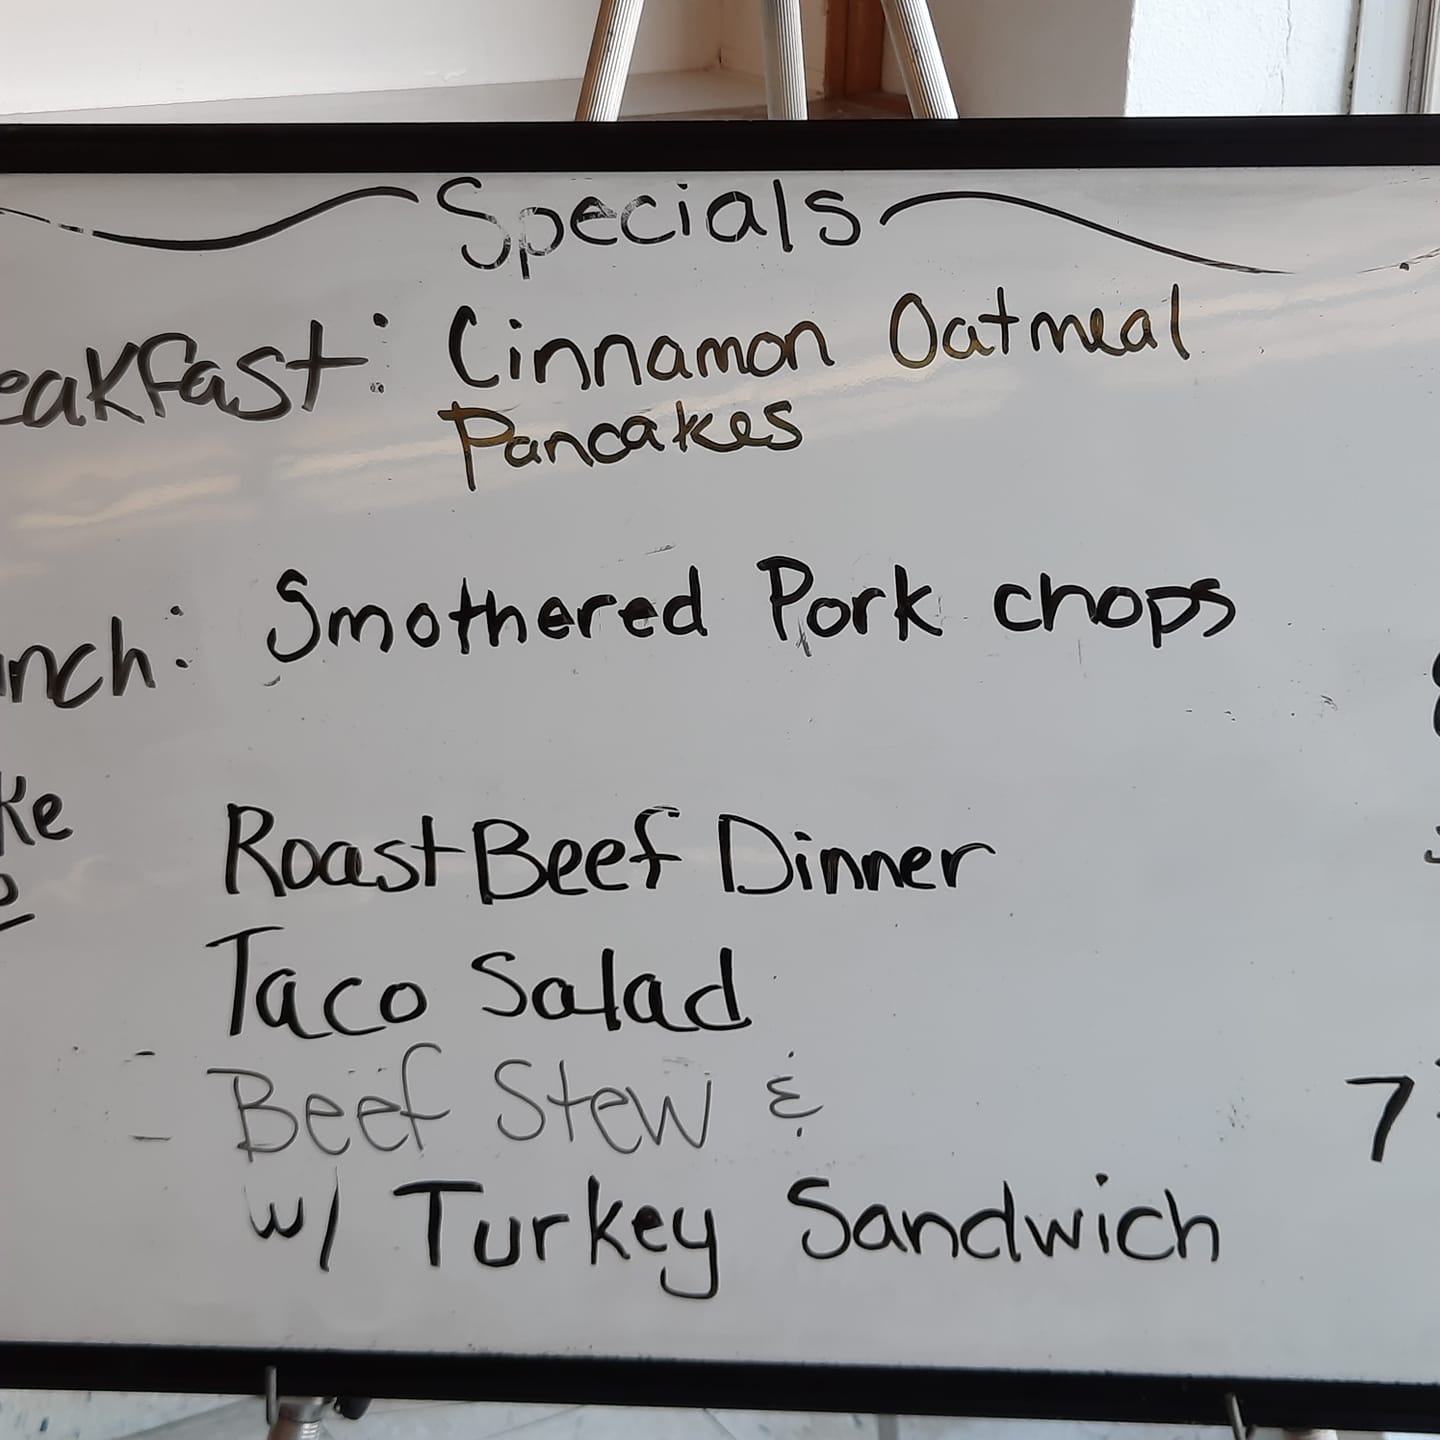 Specials
eakfast: Cinnamon Oatmeal
Pancakes
nch: Smothered Pork chops
ke
Roast Beef Dinner
Taco Salad
Beef Stew & 7
w/ Turkey Sandwich